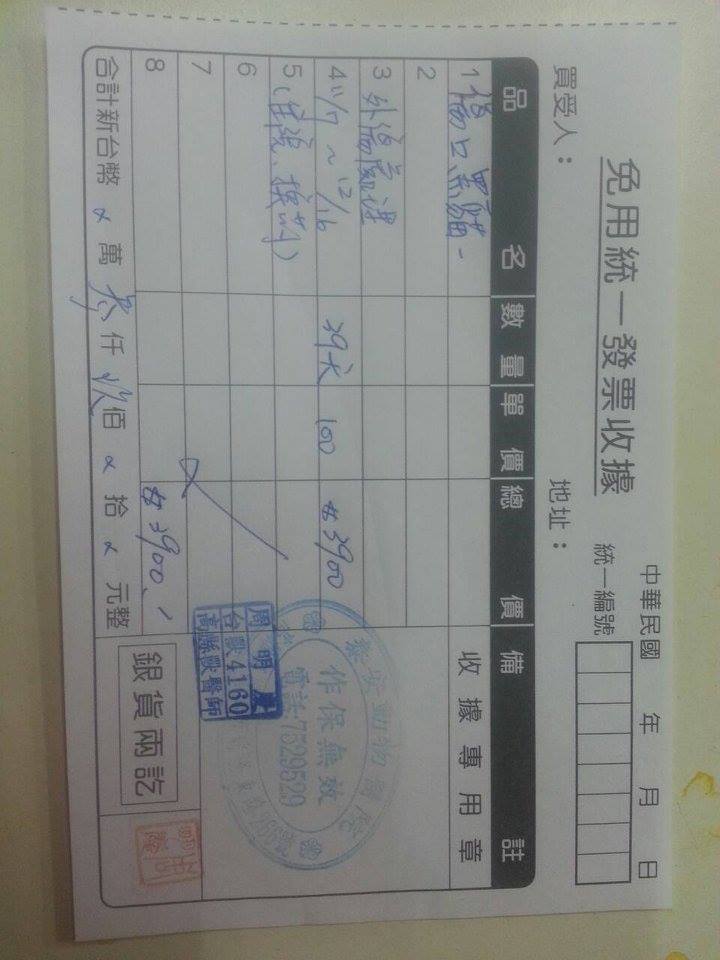 免用統一發票收據
中華民國 年 月 日
統一編號
買受人：
地址：
品 名 數量 單價 總 價 備 註
1 傷口 黑貓
收據專用章
2
3 外傷處理
4 11/7～12/16 39天 100 #3900
5 (住院、換葯)
6
7
8 #3900
合計新台幣 萬 參 仟 玖 佰 拾 元整
銀貨兩訖
安動物醫院
作保無效
電話:7529529
周明
台獸4160
高勝獸醫師